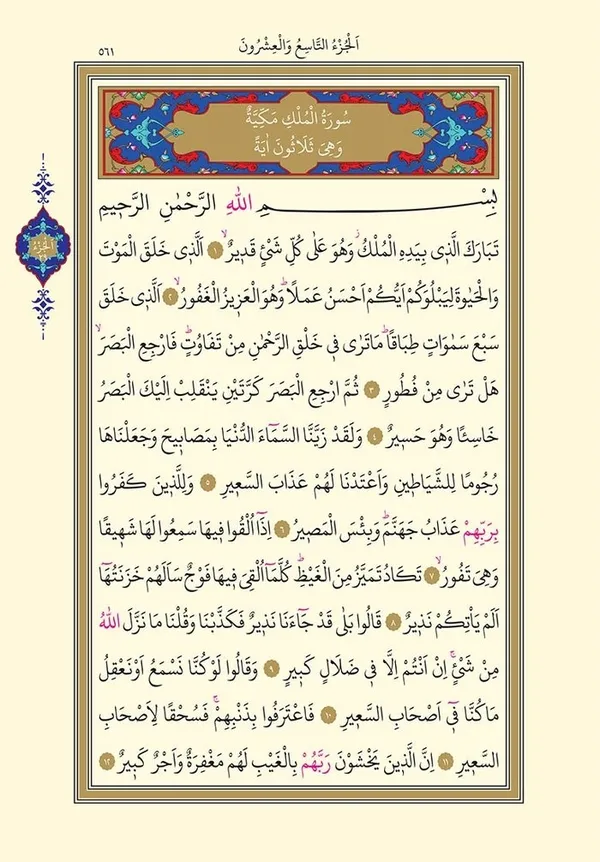 اَلْجُزْءُ التَّاسِعُ وَالْعِشْرُونَ
٥٦١
سُورَةُ الْمُلْكِ مَكِّيَّةٌ
وَهِيَ ثَلَاثُونَ اٰيَةً
اَلْجُزْءُ
بِسْمِ اللّٰهِ الرَّحْمٰنِ الرَّح۪يمِ
تَبَارَكَ الَّذ۪ي بِيَدِهِ الْمُلْكُۘ وَهُوَ عَلٰى كُلِّ شَيْءٍ قَد۪يرٌۙ ﴿١﴾ اَلَّذ۪ي خَلَقَ الْمَوْتَ
وَالْحَيٰوةَ لِيَبْلُوَكُمْ اَيُّكُمْ اَحْسَنُ عَمَلاًۜ وَهُوَ الْعَز۪يزُ الْغَفُورُۙ ﴿٢﴾ اَلَّذ۪ي خَلَقَ
سَبْعَ سَمٰوَاتٍ طِبَاقًاۜ مَا تَرٰى ف۪ي خَلْقِ الرَّحْمٰنِ مِنْ تَفَاوُتٍۜ فَارْجِعِ الْبَصَرَۙ
هَلْ تَرٰى مِنْ فُطُورٍ ﴿٣﴾ ثُمَّ ارْجِعِ الْبَصَرَ كَرَّتَيْنِ يَنْقَلِبْ اِلَيْكَ الْبَصَرُ
خَاسِئًا وَهُوَ حَس۪يرٌ ﴿٤﴾ وَلَقَدْ زَيَّنَّا السَّمَٓاءَ الدُّنْيَا بِمَصَاب۪يحَ وَجَعَلْنَاهَا
رُجُومًا لِلشَّيَاط۪ينِ وَاَعْتَدْنَا لَهُمْ عَذَابَ السَّع۪يرِ ﴿٥﴾ وَلِلَّذ۪ينَ كَفَرُوا
بِرَبِّهِمْ عَذَابُ جَهَنَّمَۜ وَبِئْسَ الْمَص۪يرُ ﴿٦﴾ اِذَٓا اُلْقُوا ف۪يهَا سَمِعُوا لَهَا شَه۪يقًا
وَهِيَ تَفُورُۙ ﴿٧﴾ تَكَادُ تَمَيَّزُ مِنَ الْغَيْظِۜ كُلَّمَٓا اُلْقِيَ ف۪يهَا فَوْجٌ سَاَلَهُمْ خَزَنَتُهَٓا
اَلَمْ يَأْتِكُمْ نَذ۪يرٌ ﴿٨﴾ قَالُوا بَلٰى قَدْ جَٓاءَنَا نَذ۪يرٌ فَكَذَّبْنَا وَقُلْنَا مَا نَزَّلَ اللّٰهُ
مِنْ شَيْءٍۚ اِنْ اَنْتُمْ اِلَّا ف۪ي ضَلَالٍ كَب۪يرٍ ﴿٩﴾ وَقَالُوا لَوْ كُنَّا نَسْمَعُ اَوْ نَعْقِلُ
مَا كُنَّا ف۪ٓي اَصْحَابِ السَّع۪يرِ ﴿١٠﴾ فَاعْتَرَفُوا بِذَنْبِهِمْۚ فَسُحْقًا لِاَصْحَابِ
السَّع۪يرِ ﴿١١﴾ اِنَّ الَّذ۪ينَ يَخْشَوْنَ رَبَّهُمْ بِالْغَيْبِ لَهُمْ مَغْفِرَةٌ وَاَجْرٌ كَب۪يرٌ ﴿١٢﴾